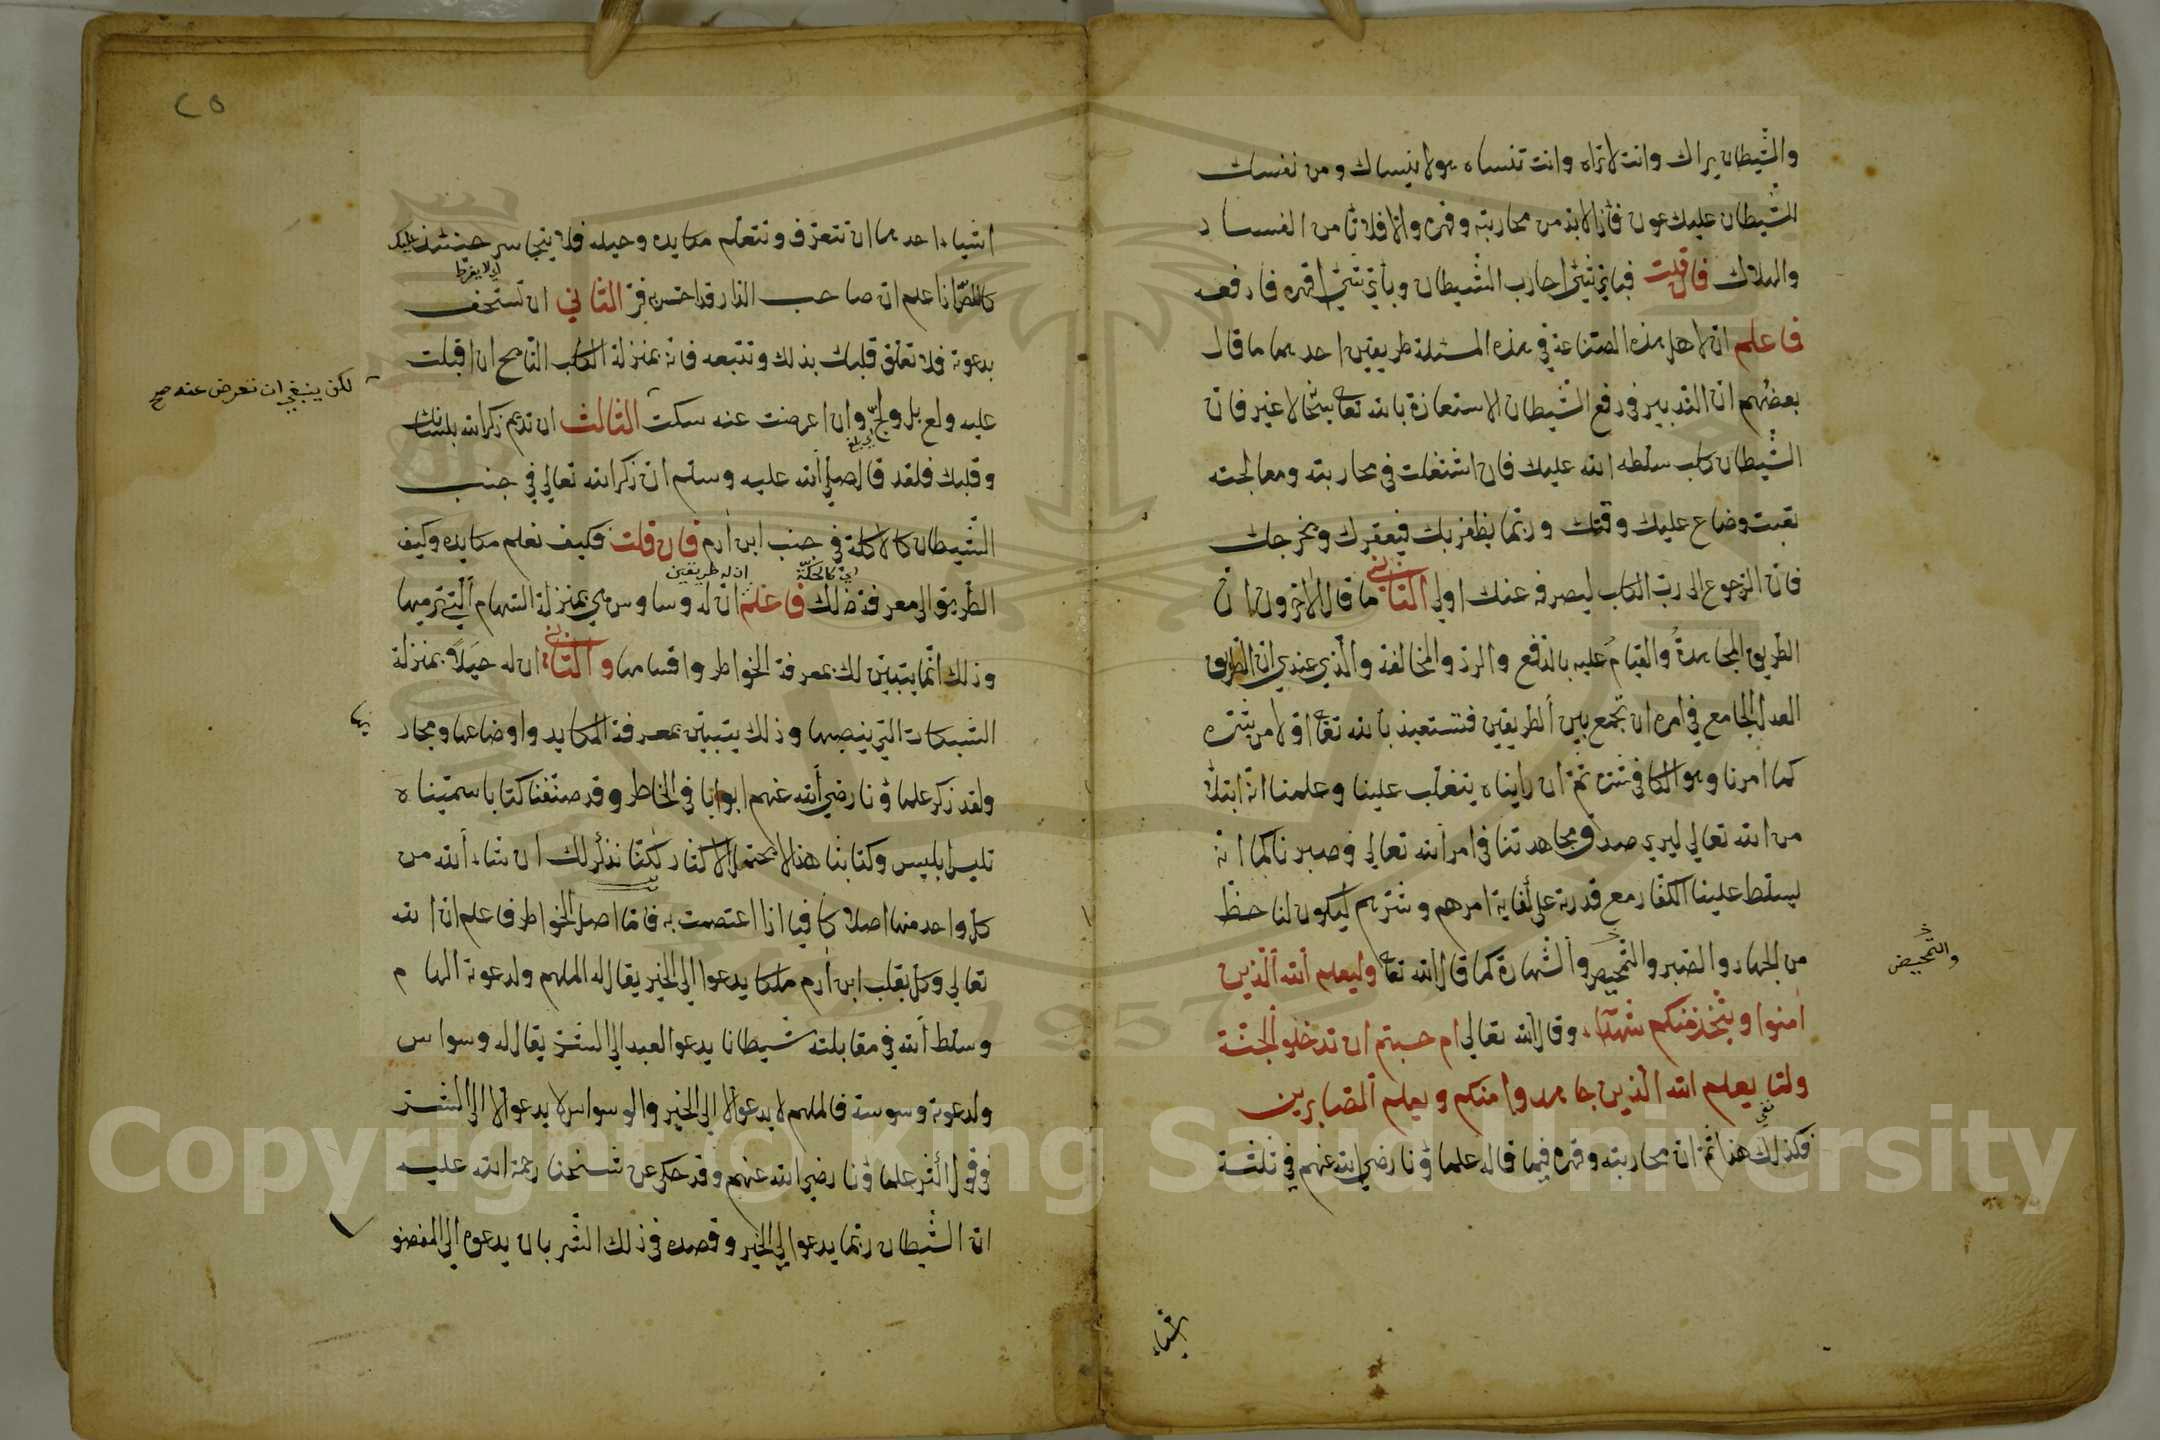 والشيطان يراك وانت لا تراه وانت تنساه هو لا ينساك ومن نفسك
الشيطان عليك عون فاذا لا بد من محاربته وقهره والا فلا تأمن الفساد
والهلاك فان قلت فباي شئ احارب الشيطان وباي شئ اقهره فادفعه
فاعلم ان لاهل هذه الصناعة في هذه المسئلة طريقين احدهما ما قال
بعضهم ان التدبير في دفع الشيطان الاستعاذة بالله تعا لا غير فان
الشيطان كلب سلطه الله عليك فان اشتغلت في محاربته ومعالجته
تعبت وضاع عليك وقتك وربما يظفر بك فيعقرك ويخرجك
فان الرجوع الى رب الكلب ليصرفه عنك اولى الثاني ما قال الاخرون ان
الطريق المجاهدة والقيام عليه بالدفع والرد والمخالفة والذي عندي ان الطريق
العدل الجامع في امره ان تجمع بين الطريقين فتستعيذ بالله تعا اولا من شره
كما امرنا وهو الكافي شره ثم ان رايناه يتغلب علينا وعلمنا انه ابتلاء
من الله تعالى ليري صدق مجاهدتنا في امر الله تعالى وصبرنا كما انه
يسلط علينا الكفار مع قدرته على كفاية امرهم وشرهم ليكون لنا حظ
من الجهاد والصبر والتمحيص والشهادة كما قال الله تعا وليعلم الله الذين
والتمحيض
امنوا ويتخذ منكم شهداء وقال الله تعالى ام حسبتم ان تدخلو الجنة
ولما يعلم الله الذين جاهدوا منكم ويعلم الصابرين
فكذلك هذا ثم ان محاربته وقهره فيما قاله علماؤنا رضي الله عنهم في ثلثة
اشياء
٢٥
اشياء احدها ان تتعرف وتتعلم مكايده وحيله فلا يتجاسر حينئذ عليك
كاللص اذا علم ان صاحب الدار قد احس به فر الثاني ان تستخف
بدعوته فلا تعلق قلبك بذلك وتتبعه فانه بمنزلة الكلب النابح ان اقبلت
لكن ينبغي ان تعرض عنه صح
عليه ولع بل ولج وان اعرضت عنه سكت الثالث ان تديم ذكر الله بلسانك
وقلبك فلقد قال صلى الله عليه وسلم ان ذكر الله تعالى في جنب
الشيطان كالاكلة في جنب ابن ادم فان قلت فكيف نعلم مكايده وكيف
اي كالحكة ان له طريقين
الطريق الى معرفة ذلك فاعلم ان له وساوس هي بمنزلة السهام التي ترميها
وذلك انما يتبين لك بمعرفة الخواطر واقسامها والثاني ان له حيلا بمنزلة
الشبكات التي ينصبها وذلك يتبين بمعرفة المكايد واوضاعها ومجار
يها
ولقد ذكر علماؤنا رضي الله عنهم ابوابا في الخاطر وقد صنفنا كتابا سميناه
تلبيس ابليس وكتابنا هذا لا يحتمل الاكثار لكنا نذكر لك ان شاء الله من
كل واحد منها اصلا كافيا اذا اعتصمت به فاما اصل الخواطر فاعلم ان الله
تعالى وكل بقلب ابن ادم ملكا يدعوا الى الخير يقال له الملهم ولدعوته الهام
وسلط الله في مقابلته شيطانا يدعو العبد الى الشر يقال له وسواس
ولدعوته وسوسة فالملهم لا يدعو الا الى الخير والوسواس لا يدعو الا الى الشر
في قول اكثر علماؤنا رضي الله عنهم وقد حكي عن شيخنا رحمة الله عليه
ان الشيطان ربما يدعوا الى الخير وقصده في ذلك الشر بان يدعوه الى المفضو
Copyright © King Saud University
1957